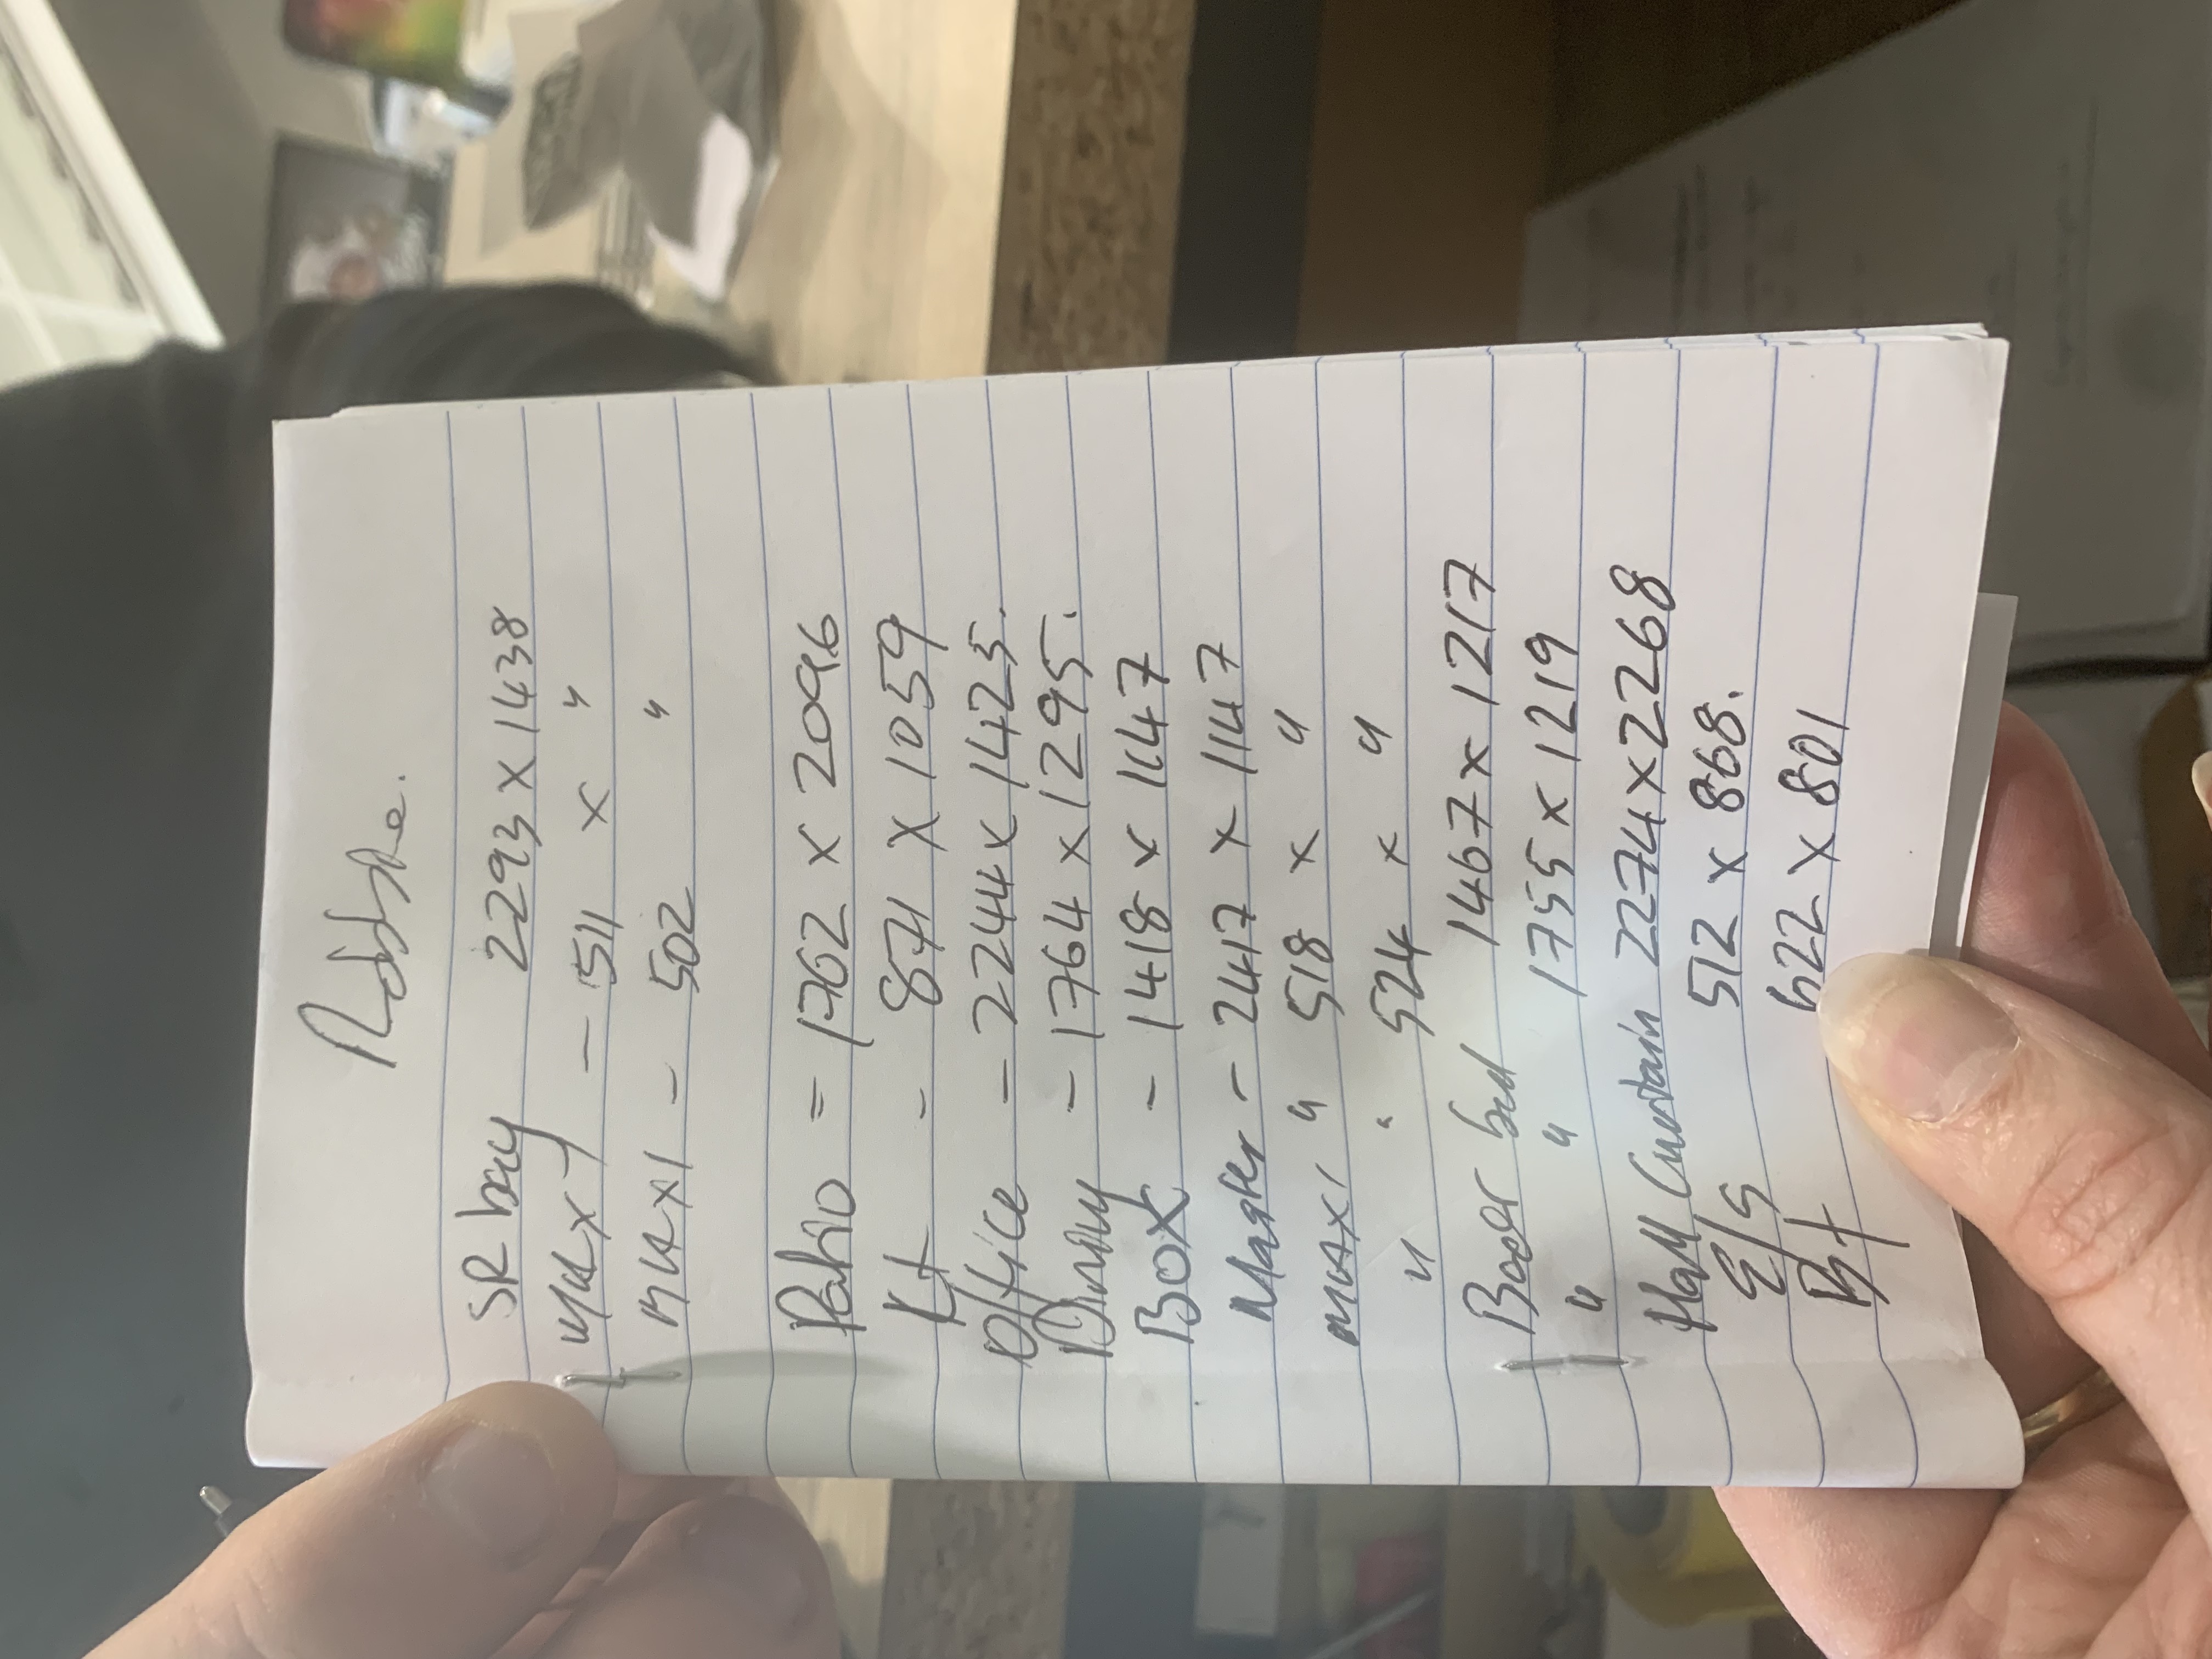 SR bay 2293 x 1438
- 511 x "
max 1 - 502 "
Patio = 1762 x 2096
Kt - 871 x 1059
Office - 2244 x 1425.
Dining - 1764 x 1295.
BOX - 1418 x 1147
Master - 2417 x 1147
max 1 " 518 x "
" " 524 x "
bed 1467 x 1217
" " 1755 x 1219
Hall Curtain 2274 x 2268
E/S 512 x 868.
622 x 801